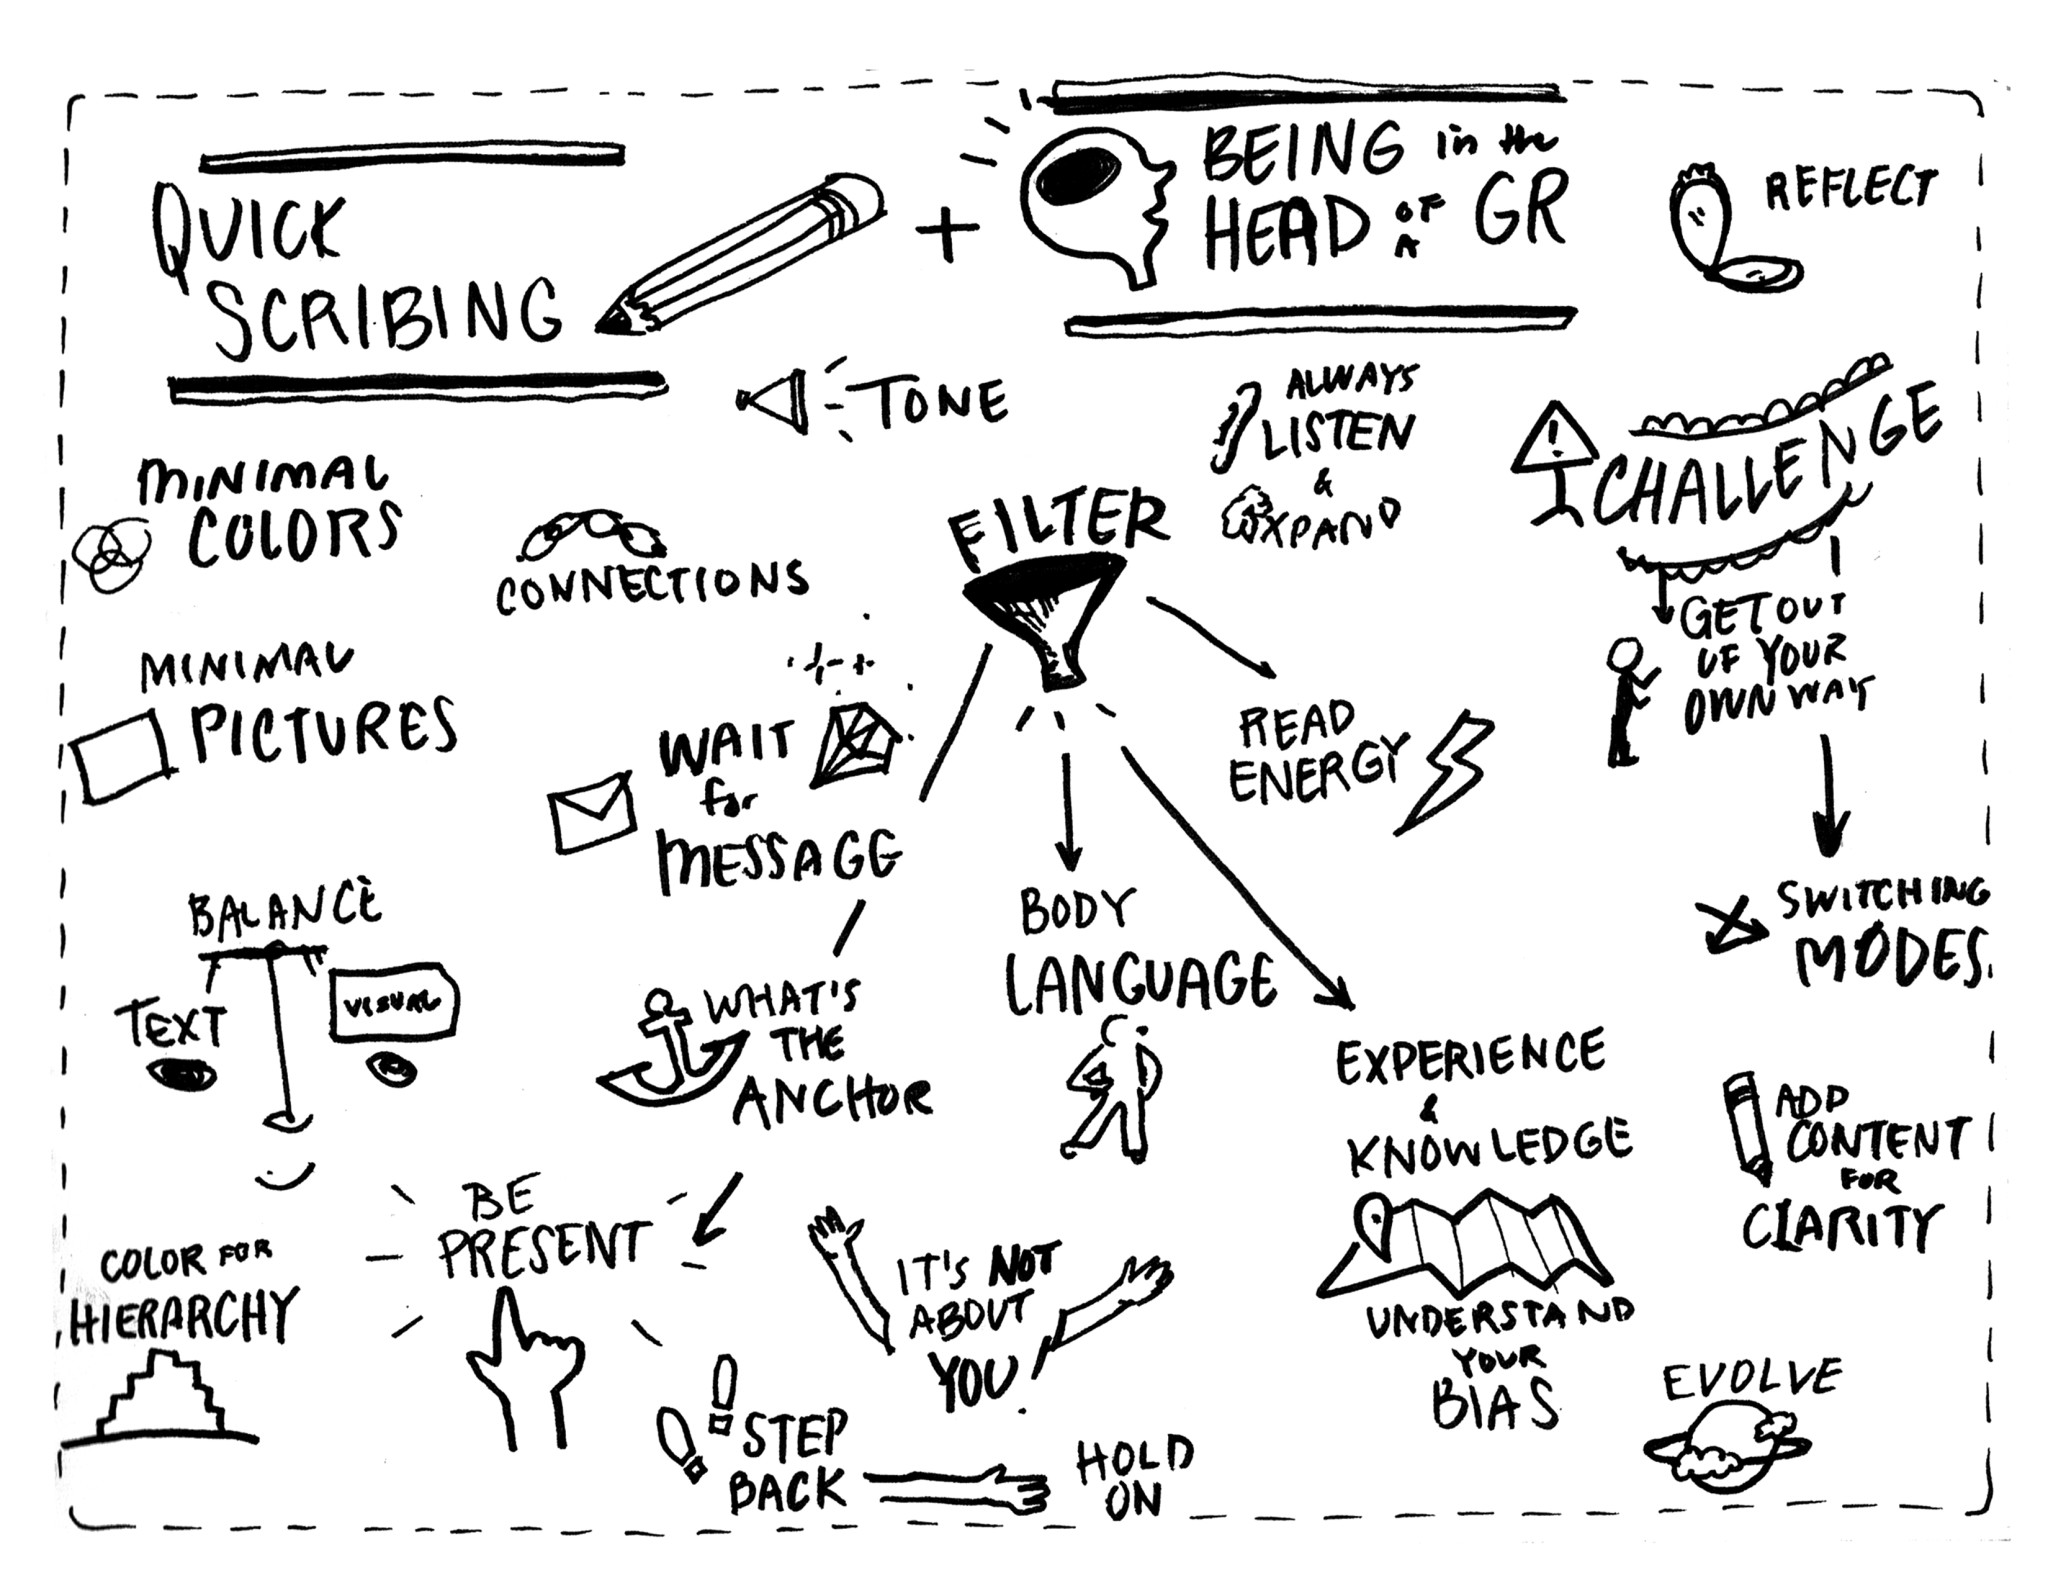 QUICK
SCRIBING
+
BEING in the
HEAD OF A GR
REFLECT
TONE
ALWAYS
LISTEN
&
EXPAND
CHALLENGE
MINIMAL
COLORS
CONNECTIONS
FILTER
GET OUT
OF YOUR
OWN WAY
MINIMAL
PICTURES
WAIT
for
MESSAGE
READ
ENERGY
BALANCE
TEXT
VISUAL
BODY
LANGUAGE
SWITCHING
MODES
WHAT'S
THE
ANCHOR
EXPERIENCE
&
KNOWLEDGE
ADD
CONTENT
FOR
CLARITY
BE
PRESENT
COLOR FOR
HIERARCHY
IT'S NOT
ABOUT
YOU
UNDERSTAND
YOUR
BIAS
EVOLVE
STEP
BACK
HOLD
ON